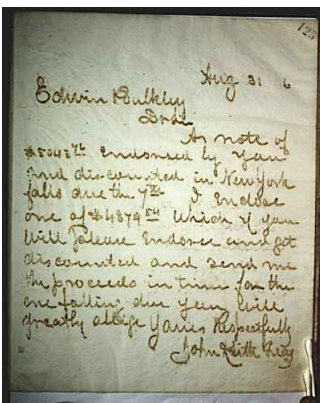 125
Aug 31 6
Edwin Bulkley
Dr Sir
As note of
$5043 75 Endorsed by you
and discounted in New York
falls due the 7th I Enclose
one of $4879 54 Which if you
Will please Endorse and get
discounted and send me
the proceeds in time for the
one falling due you will
greatly oblige Yours Respectfully
John Keith